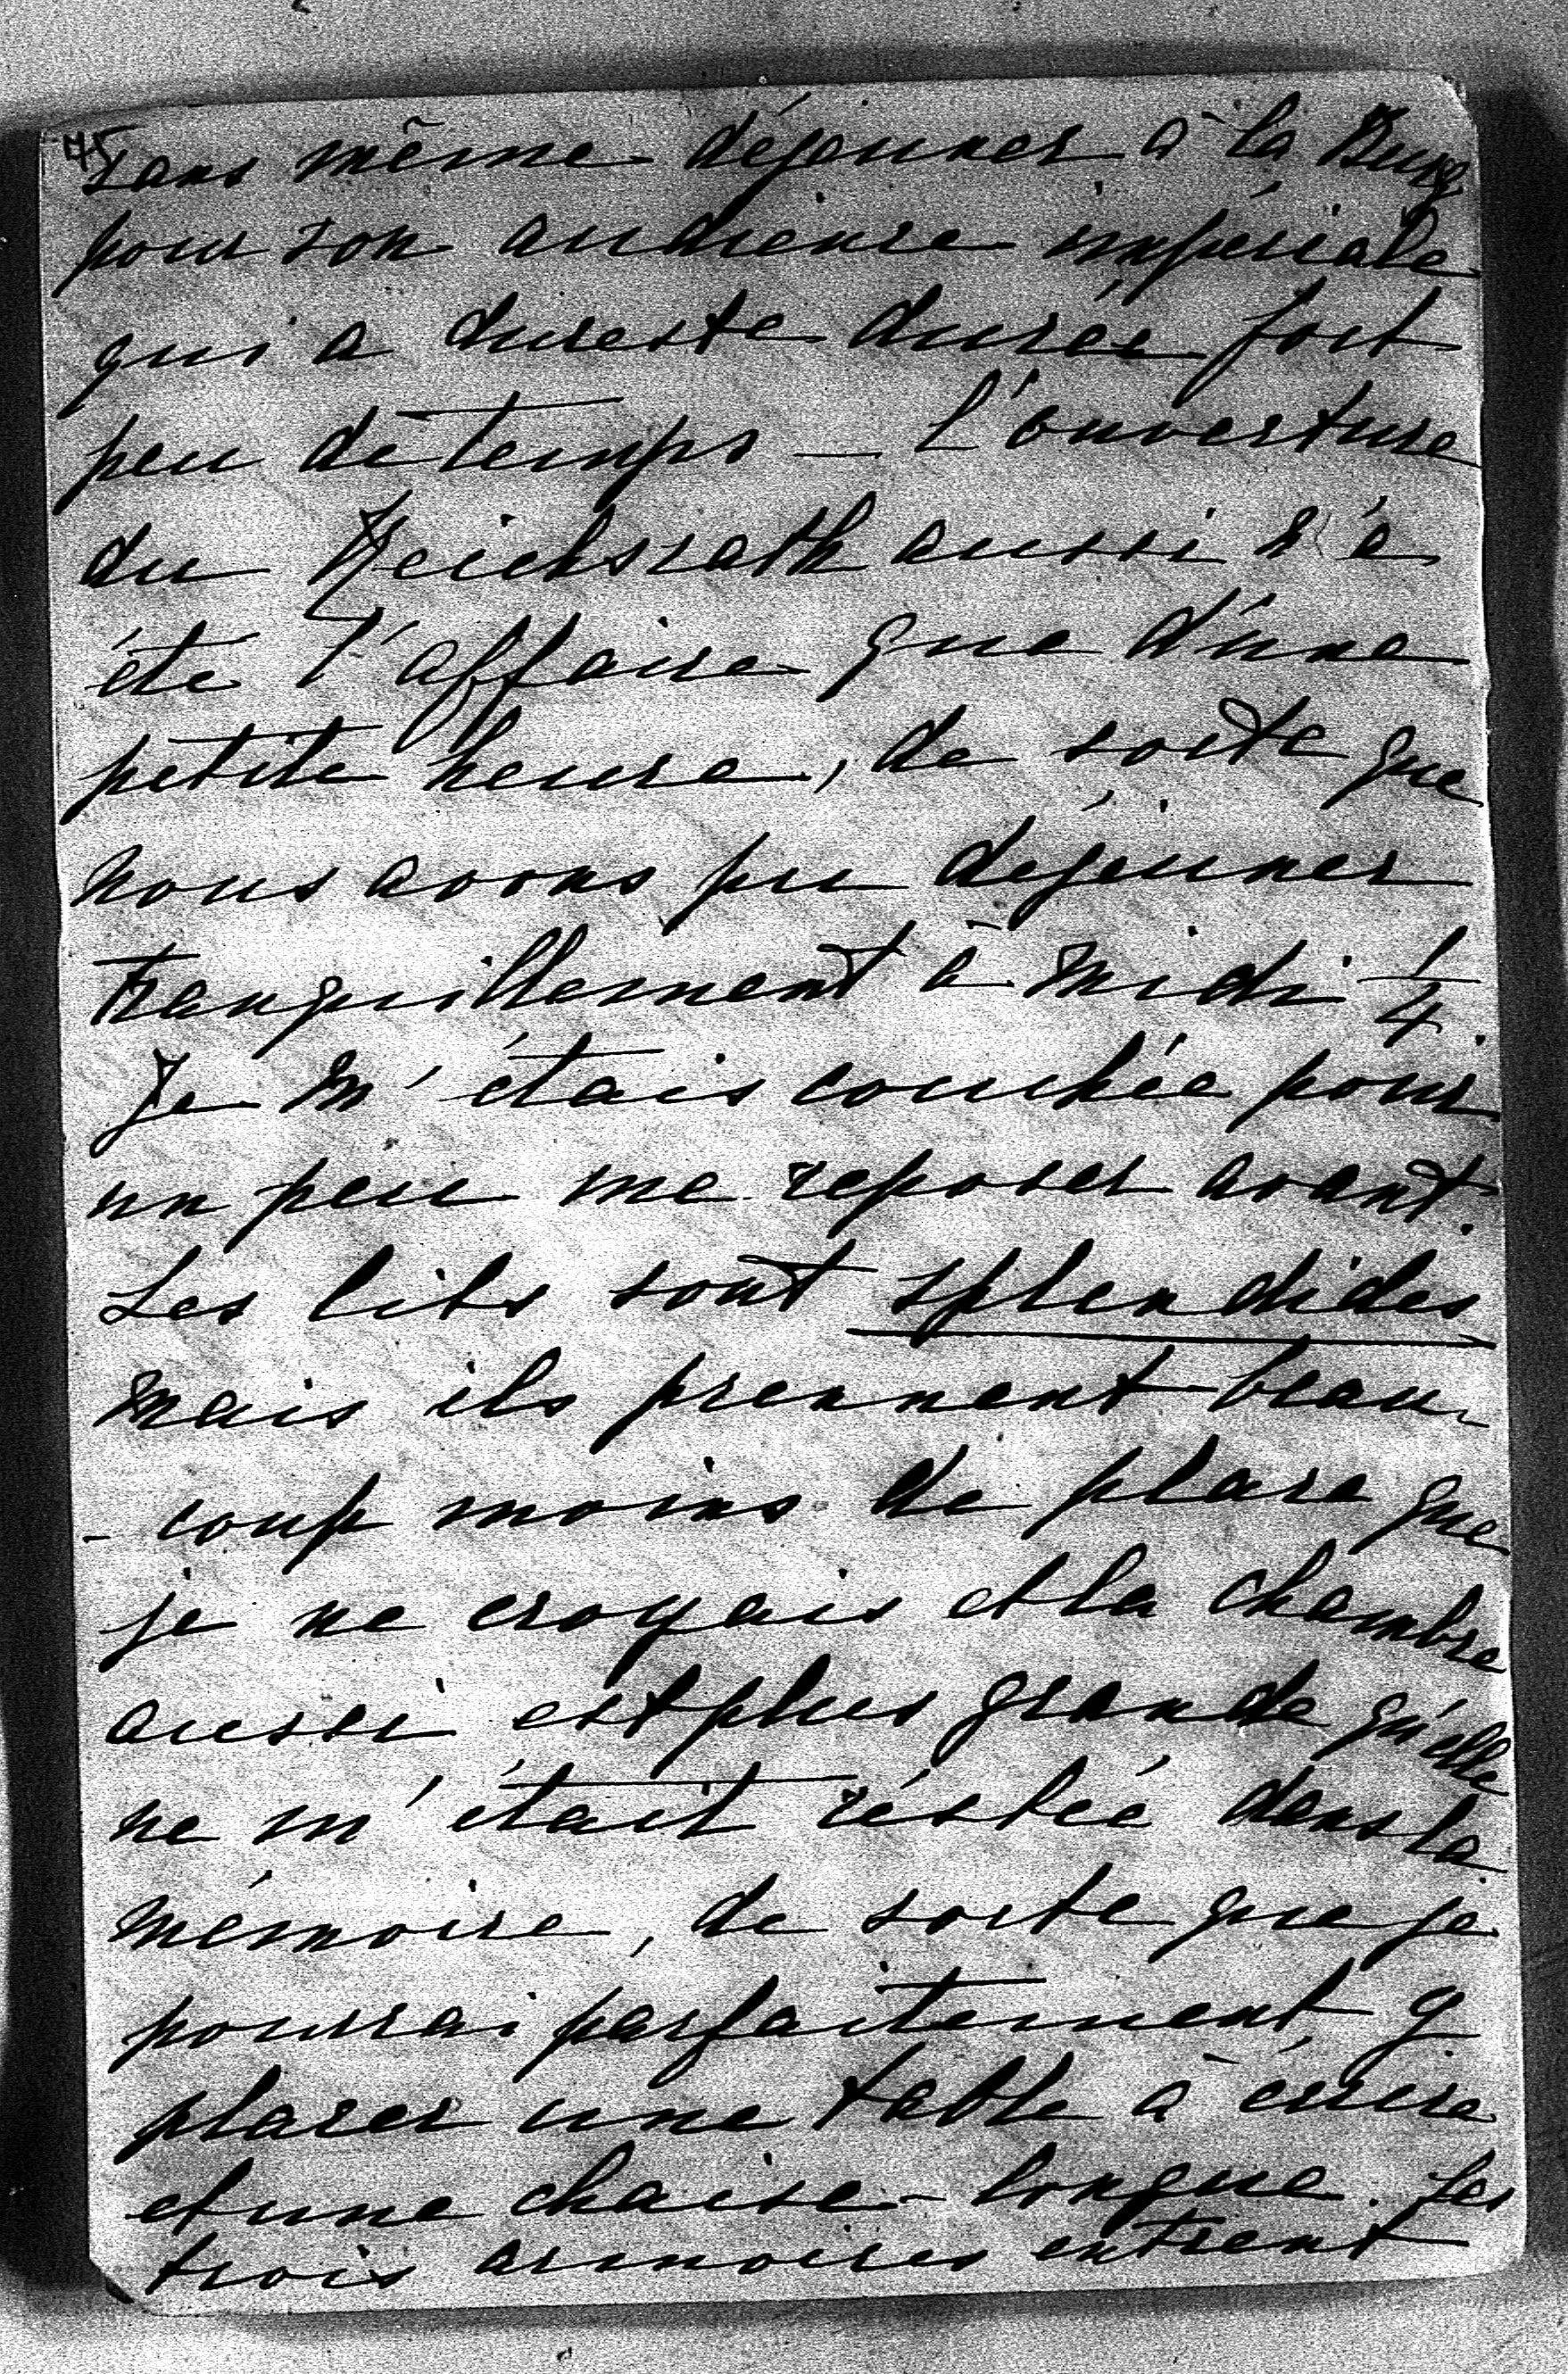 75
sans même déjeuner à la Burg
pour son audience impériale
qui a dureste durée fort
peu de temps — L'ouverture
du Reichsrath aussi n'a
été l'affaire que d'une
petite heure, de sorte que
nous avons pu déjeuner
tranquillement à midi 1/4.
Je m'étais couchée pour
un peu me reposer avant.
Les lits sont splendides
mais ils prennent beau-
-coup moins de place que
je ne croyais et la chambre
aussi est plus grande qu'elle
ne m'était réstée dans la
mémoire, de sorte que je
pourrai parfaitement y
placer une table à écrire
et une chaise-longue. Les
trois armoires entrent